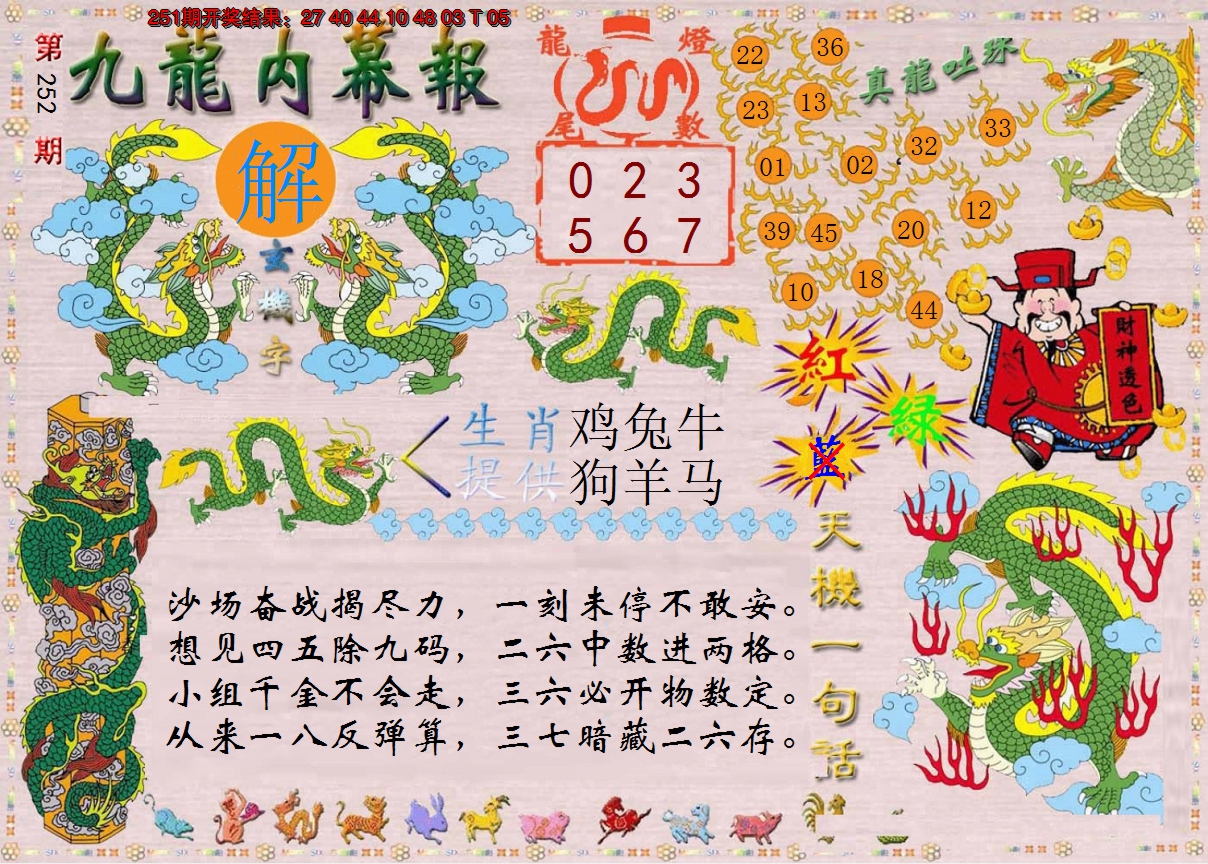 251期开奖结果：27 40 44 10 48 03 T 05
第252期
九龍内幕報
解
玄機字
龍燈
尾數
0 2 3
5 6 7
真龍吐珠
22 36
23 13
32 33
01 02
39 45 20 12
10 18 44
財神透色
紅
綠
藍
生肖 鸡兔牛
提供 狗羊马
天機一句話
沙场奋战揭尽力，一刻未停不敢安。
想见四五除九码，二六中数进两格。
小组千金不会走，三六必开物数定。
从来一八反弹算，三七暗藏二六存。